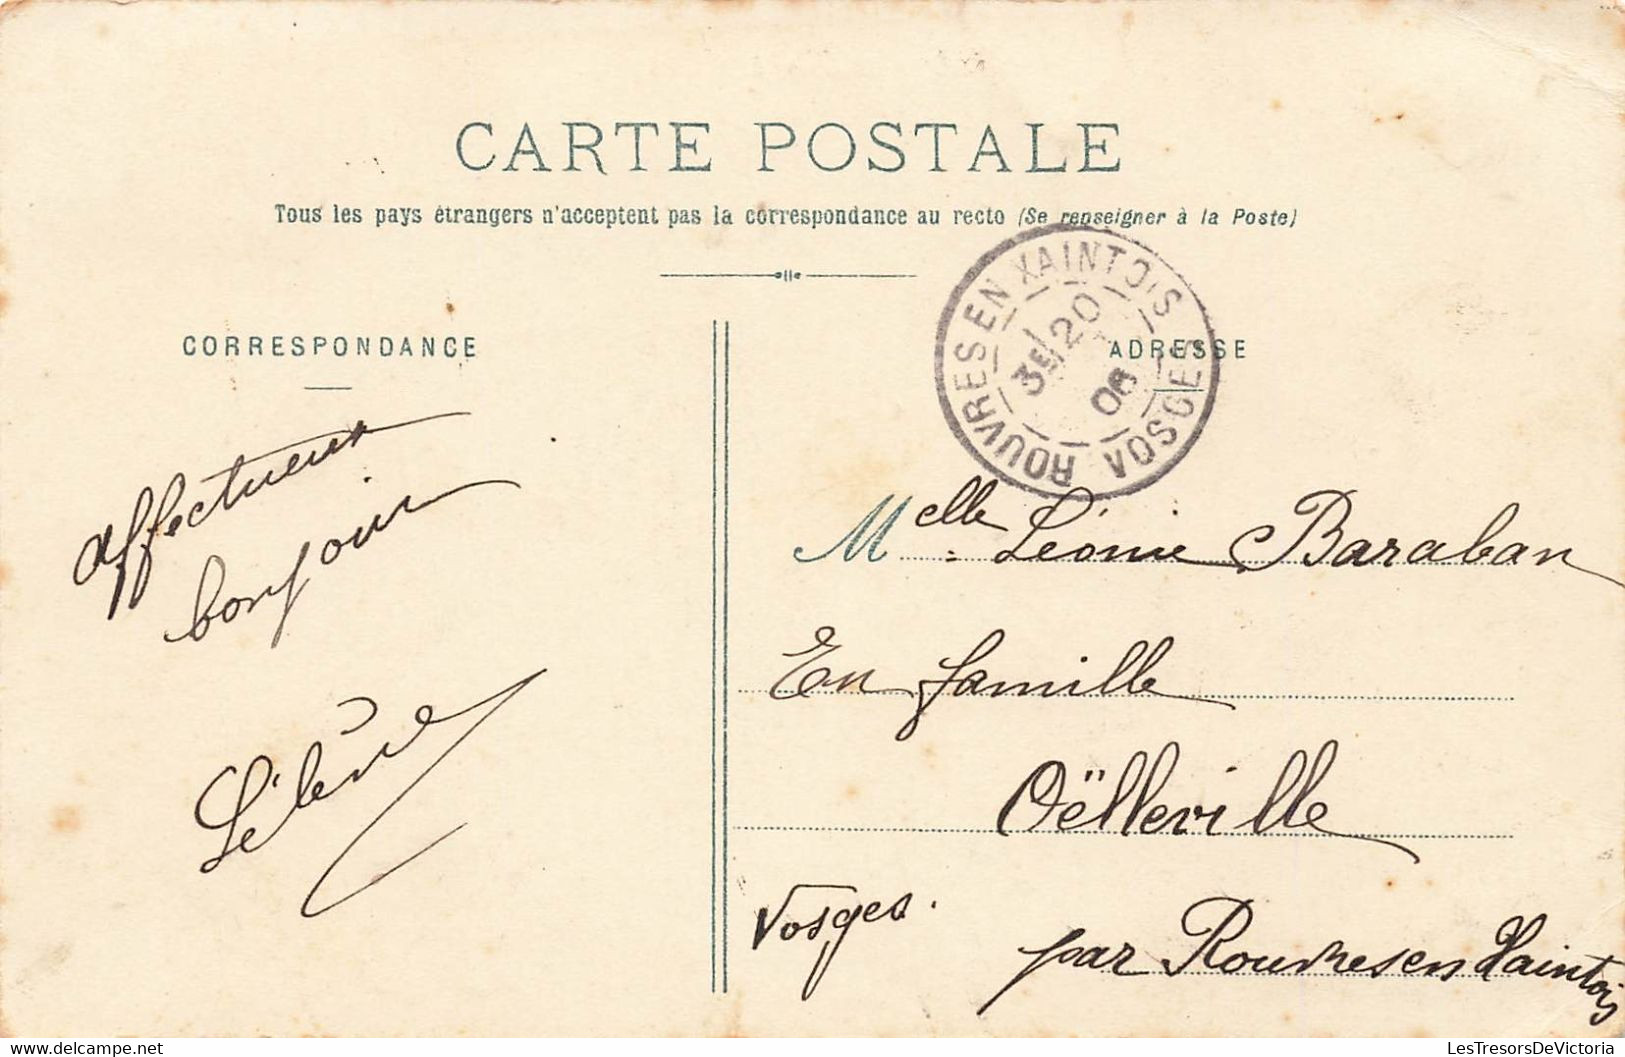 CARTE POSTALE
Tous les pays étrangers n'acceptent pas la correspondance au recto (Se renseigner à la Poste)
ROUVRES EN XAINTOIS
3E 20
08
VOSGES
CORRESPONDANCE
affectueux
bonjour
ADRESSE
Melle Léonie Baraban
En famille
Oëlleville
Vosges.
par Rouvres en Xaintois
LesTresorsDeVictoria